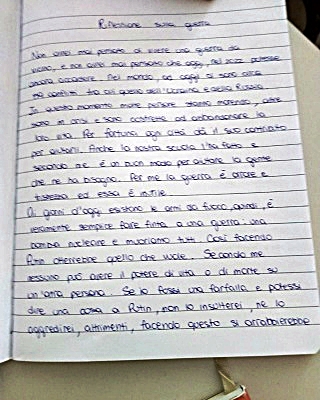 Riflessione sulla guerra
Non avrei mai pensato di vivere una guerra da
vicino, e non avrei mai pensato che oggi, nel 2022 potesse
ancora accadere. Nel mondo, ad oggi ci sono circa
conflitti tra cui quello dell'Ucraina e della Russia.
In questo momento molte persone stanno morendo, altre
sono in ansi e sono costrette ad abbandonare la
loro vita. Per fortuna ogni città dà il suo contributo
per aiutarli. Anche la nostra scuola l'ha fatto e
secondo me è un buon modo per aiutare la gente
che ne ha bisogno. Per me la guerra è orrore e
tristezza ed essa è inutile.
Ai giorni d'oggi esistono le armi da fuoco, quindi, è
veramente semplice fare finta a una guerra: una
bomba nucleare e muoriamo tutti. Così facendo
Putin otterrebbe quello che vuole. Secondo me
nessuno può avere il potere di vita o di morte su
un'altra persona. Se io fossi una farfalla e potessi
dire una cosa a Putin, non lo insulterei, ne lo
aggredirei, altrimenti, facendo questo si arrabbierebbe